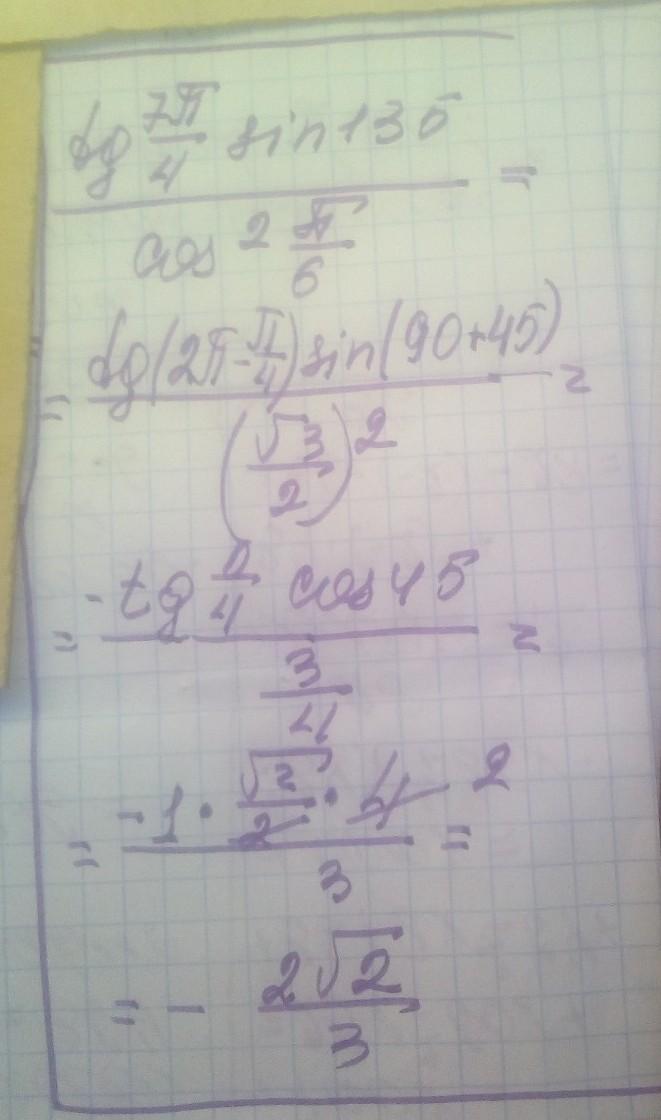 tg 7π/4 sin135 / cos² π/6 =
= tg(2π-π/4)sin(90+45) / (√3/2)² =
= -tg π/4 cos45 / 3/4 =
= -1·√2/2·4 2 / 3 =
= - 2√2/3